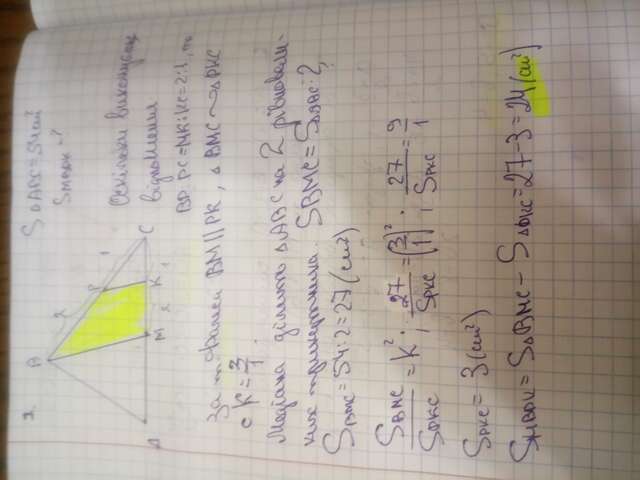 2.
S△ABC=54см²
SMBPK-?
B
2
P
1
A
M
2
K
1
C
Оскільки виконується
відношення
BP:PC=MK:KC=2:1, то
за т. Фалеса BM||PK, △BMC~△PKC
с K=3/1.
Медіана ділить △ABC на 2 рівновели-
ких трикутника. SBMC=S△ABC:2
SBMC=54:2=27(см²)
SBMC/SPKC=K²; 27/SPKC=(3/1)²; 27/SPKC=9/1
SPKC=3(см²)
SMBPK=S△BMC-S△PKC=27-3=24(см²)